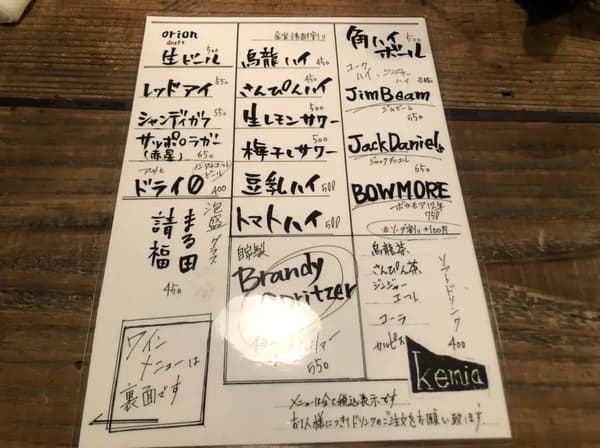 orion
draft
生ビール 500
レッドアイ 550
シャンディガフ 550
サッポロラガー
(赤星) 650
ノンアルコールビール
アサヒ
ドライ0 400
泡盛 グラス
まる田
請福
450
ワイン
メニューは
裏面です
烏龍ハイ 450
さんぴんハイ 450
生レモンサワー 500
梅干しサワー 500
豆乳ハイ 500
トマトハイ 500
自家製
Brandy
Spritzer
550
角ハイボール 500
コーク
ハイ、ジンジャー
ハイ
JimBeam
ジムビーム
550
JackDaniels
ジャックダニエル
650
BOWMORE
ボウモア12年
750
※ソーダ割り+100円
烏龍茶、
さんぴん茶、
ジンジャー
エール
コーラ
カルピス
ソフトドリンク
400
kemia
メニューは全て税込表示です
お1人様につき1ドリンクのご注文をお願い致します